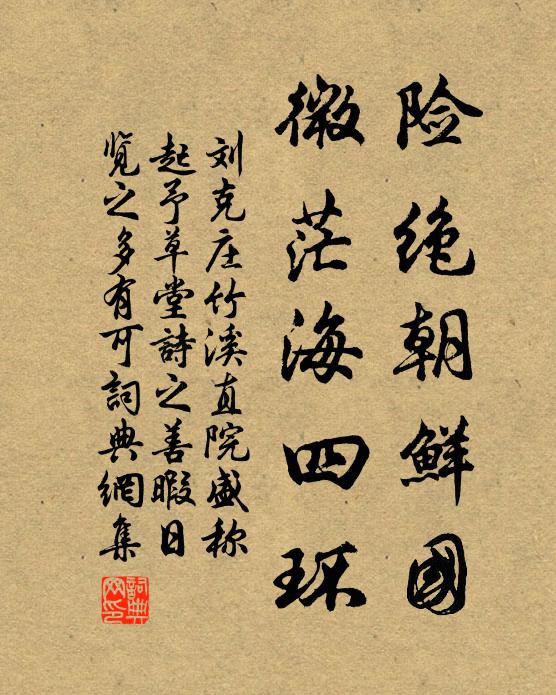 险绝朝鲜國
微茫海四环
刘克庄竹溪直院盛称
起予草堂詩之善暇日
览之多有可詞典網集
詞典
网印